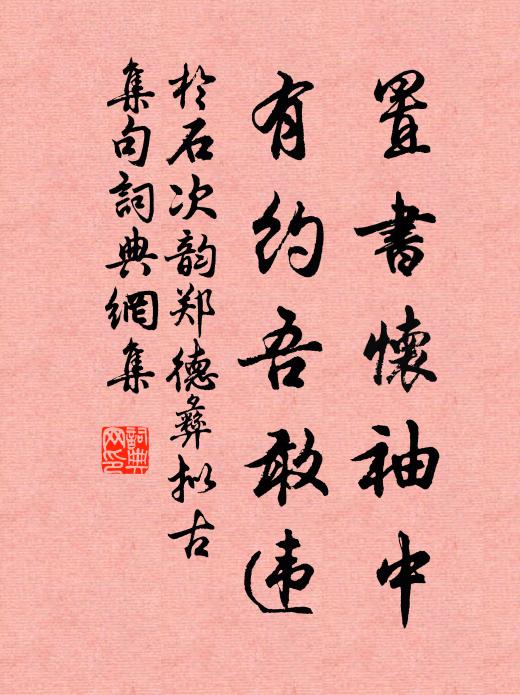 置書懷袖中
有约吾敢违
於石次韵郑德彝拟古
集句詞典網集
詞典
网印